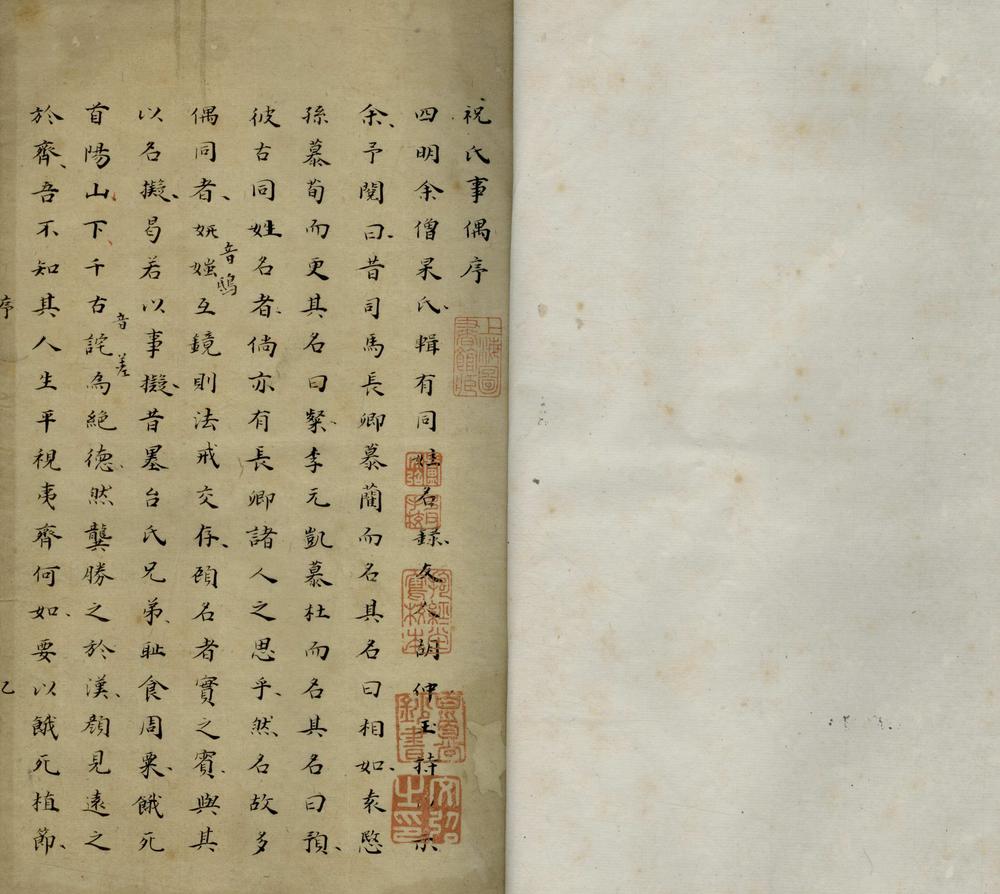 祝氏事偶序
四明余僧杲氏輯有同姓名錄友人胡仲玉持示
余予閱曰昔司馬長卿慕藺而名其名曰相如袁愍
孫慕荀而更其名曰粲李元凱慕杜而名其名曰預
彼古同姓名者倘亦有長卿諸人之思乎然名故多
偶同者妍媸互鏡則法戒交存頋名者實之賓與其
音鴟
以名擬曷若以事擬昔墨台氏兄弟耻食周粟餓死
首陽山下千古詫為絕德然龔勝之於漢顔見遠之
音差
於齊吾不知其人生平視夷齊何如要以餓死植節
序
乙
上海圖書館藏
文弨
之印